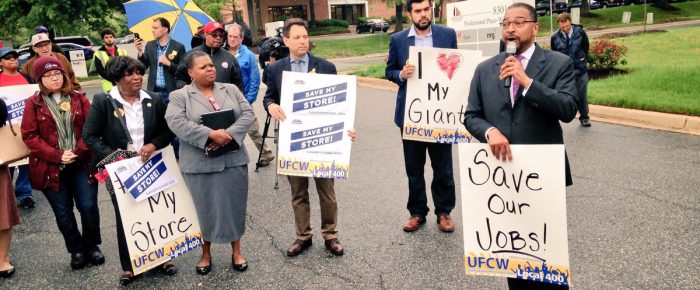 830
Professional Place
SAVE MY
STORE!
My
Store
UFCW
Local 400
SAVE MY
STORE!
SAVE MY
STORE!
UFCW
Local 400
I
My
Giant
UFCW
Save
Our
Jobs!
UFCW
Local 400